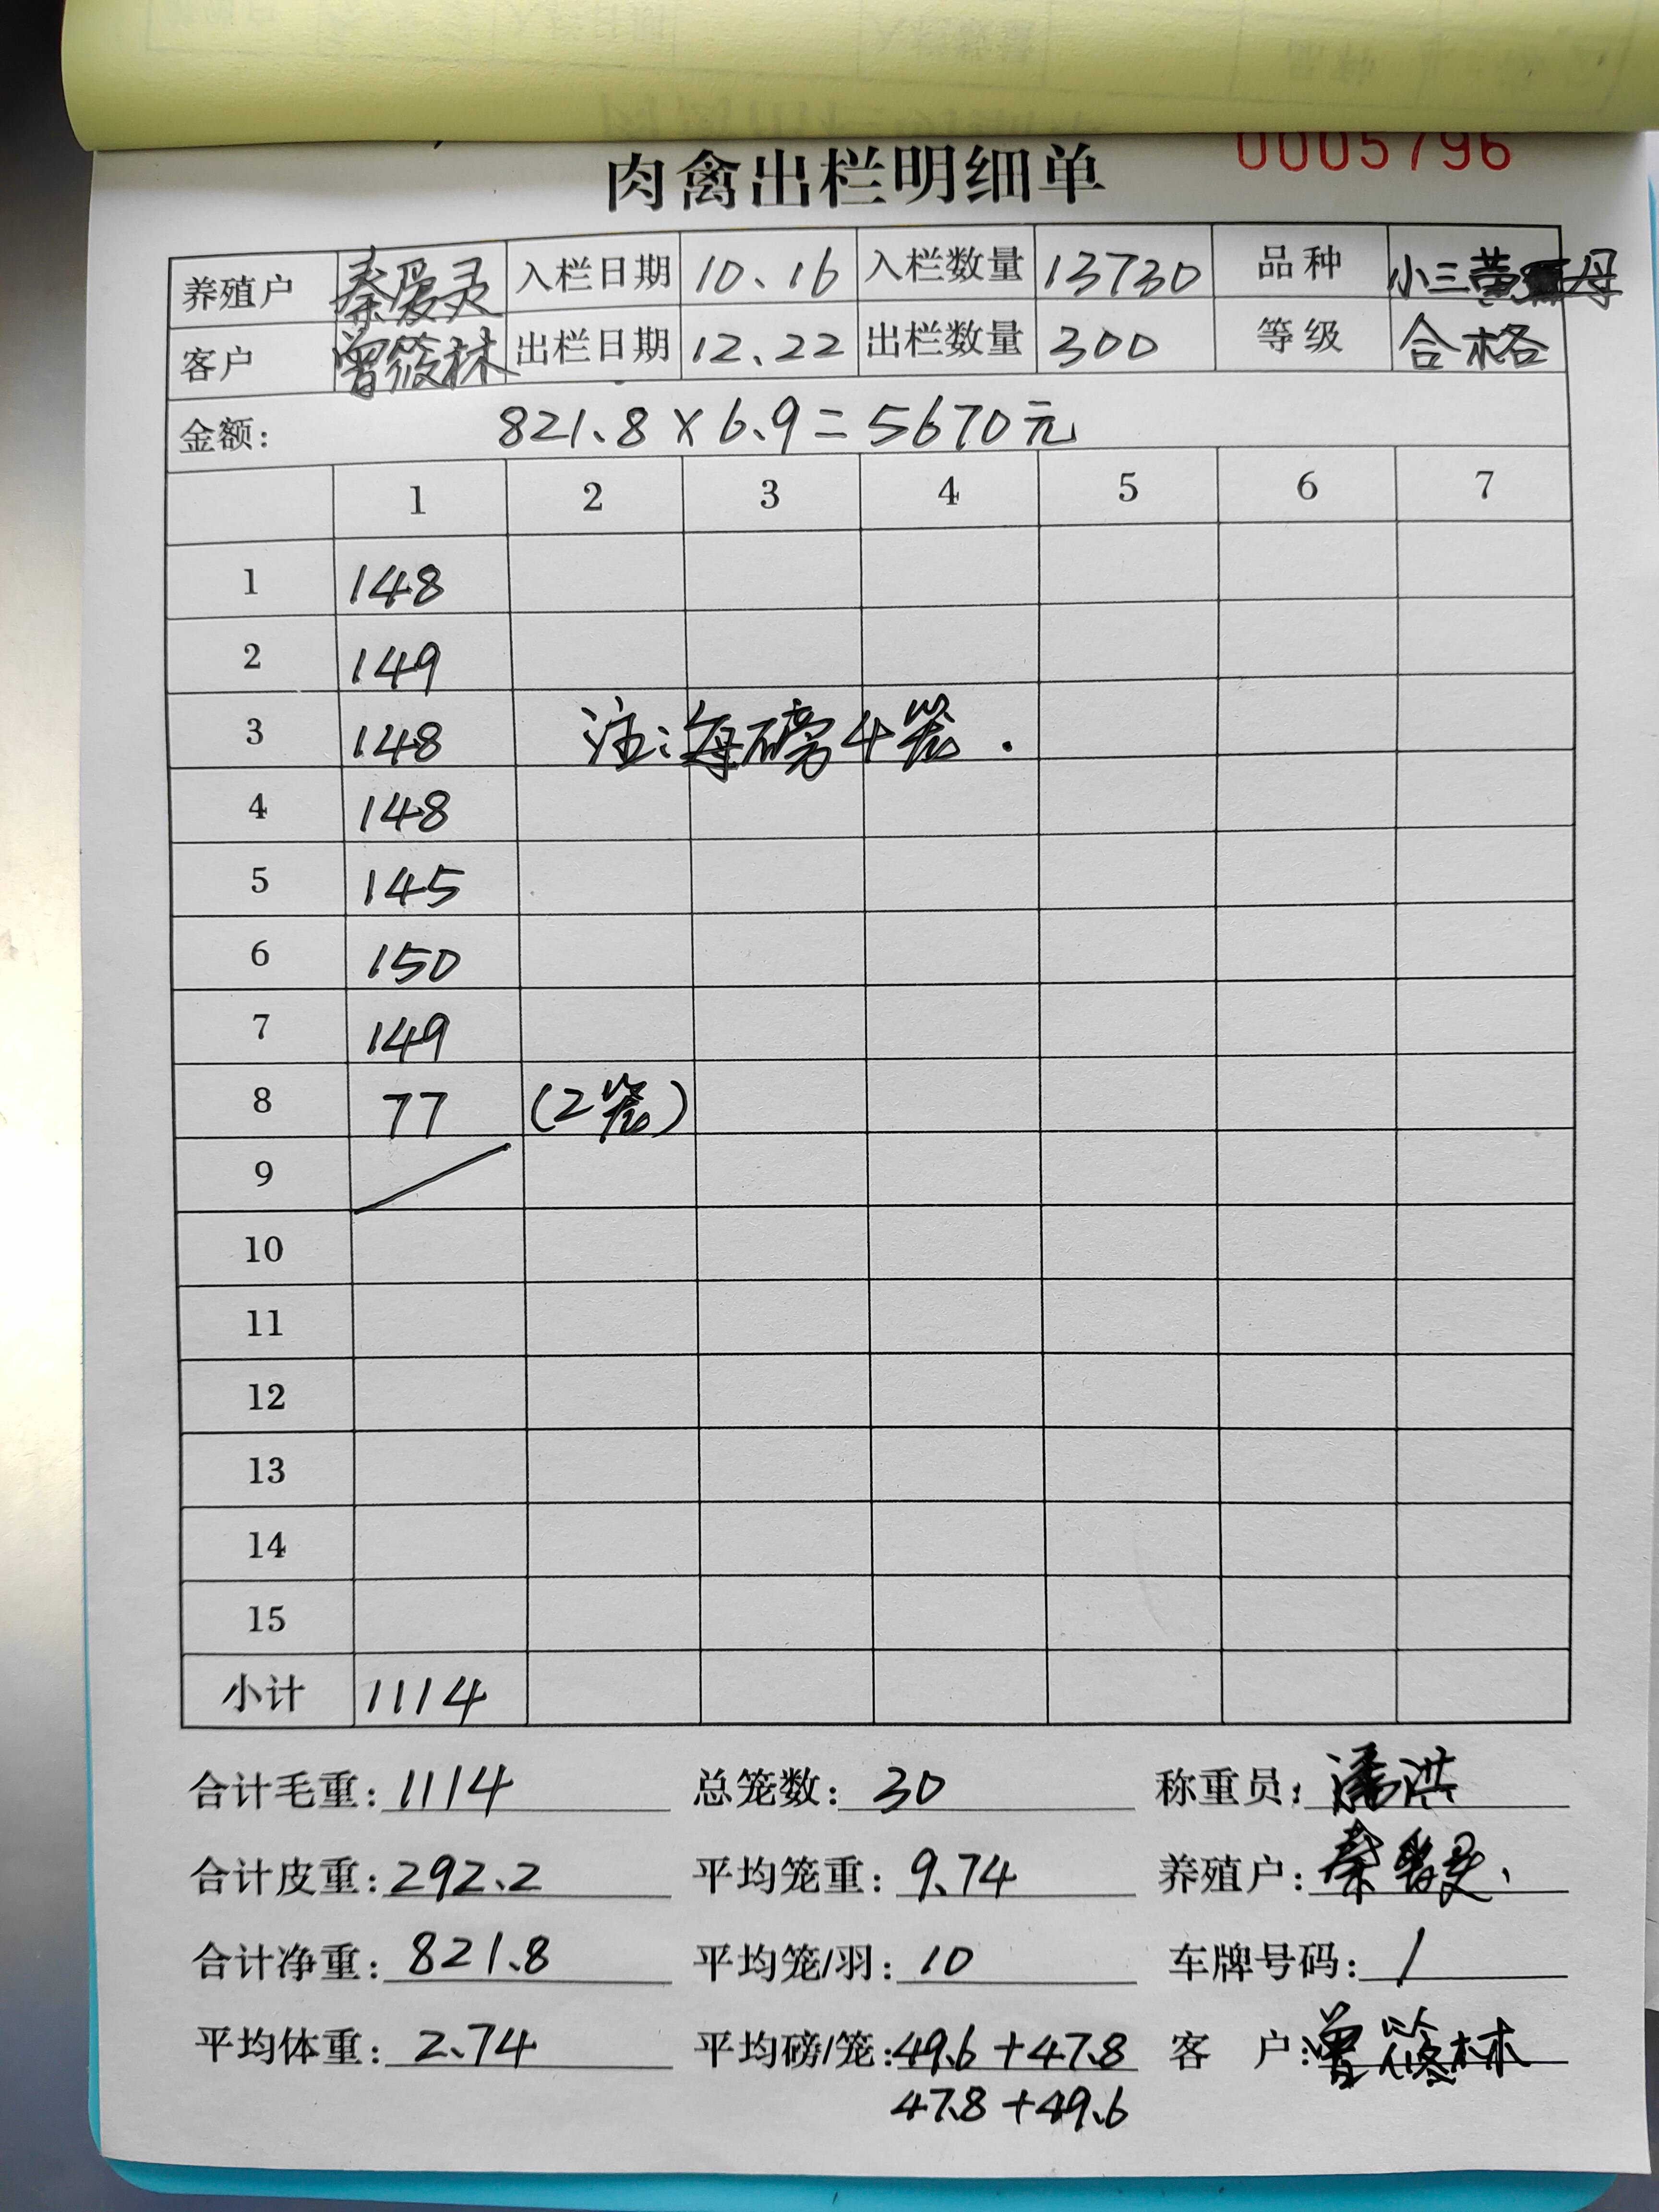 0005796
肉禽出栏明细单
养殖户 秦爱灵 入栏日期 10.16 入栏数量 13730 品种 小三黄 丹
客户 曾筱林 出栏日期 12.22 出栏数量 300 等级 合格
金额: 821.8×6.9=5670元
1 2 3 4 5 6 7
1 148
2 149
3 148 注:每磅4笼.
4 148
5 145
6 150
7 149
8 77 (2笼)
9
10
11
12
13
14
15
小计 1114
合计毛重: 1114 总笼数: 30 称重员: 潘洪
合计皮重: 292.2 平均笼重: 9.74 养殖户: 秦爱灵
合计净重: 821.8 平均笼/羽: 10 车牌号码: /
平均体重: 2.74 平均磅/笼: 49.6+47.8 客 户: 曾筱林
47.8+49.6